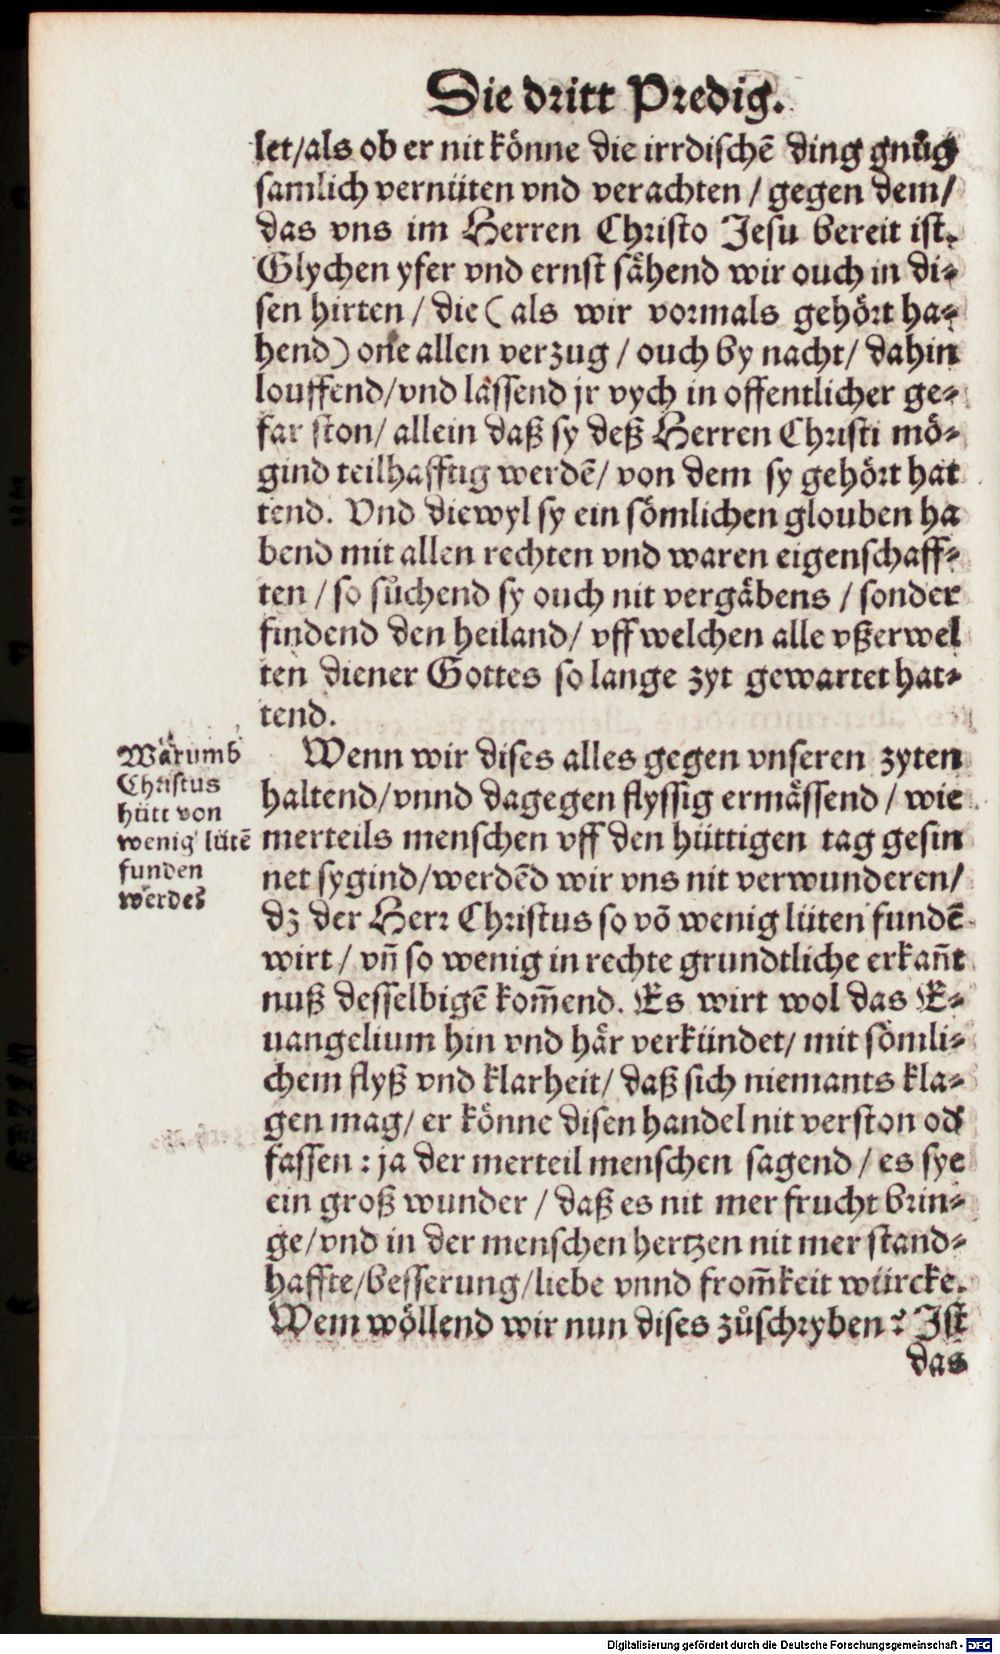 Die dritt Predig.
let/als ob er nit könne die irrdischẽ ding gnůg
samlich vernüten vnd verachten / gegen dem/
das vns im Herren Christo Jesu bereit ist.
Glychen yfer vnd ernst sähend wir ouch in di-
sen hirten / die (als wir vormals gehört ha-
hend) one allen verzug / ouch by nacht/ dahin
louffend/vnd lassend jr vych in offentlicher ge-
far ston/ allein daß sy deß Herren Christi mö-
gind teilhafftig werdẽ/ von dem sy gehört hat
tend. Vnd diewyl sy ein sömlichen glouben ha
bend mit allen rechten vnd waren eigenschaff-
ten / so sůchend sy ouch nit vergäbens / sonder
findend den heiland/ vff welchen alle vßerwel
ten diener Gottes so lange zyt gewartet hat-
tend.
Warumb
Christus
hütt von
wenig lütẽ
funden
werdes
Wenn wir dises alles gegen vnseren zyten
haltend/vnnd dagegen flyssig ermässend / wie
merteils menschen vff den hüttigen tag gesin
net sygind/werdẽd wir vns nit verwunderen/
dz der Herr Christus so võ wenig lüten fundẽ
wirt / vñ so wenig in rechte grundtliche erkañt
nuß desselbigẽ kom̃end. Es wirt wol das E-
uangelium hin vnd här verkündet/ mit sömli-
chem flyß vnd klarheit/ daß sich niemants kla-
gen mag/ er könne disen handel nit verston od
fassen : ja der merteil menschen sagend / es sye
ein groß wunder / daß es nit mer frucht brin-
ge/vnd in der menschen hertzen nit mer stand-
haffte/besserung/liebe vnnd from̃keit würcke.
Wem wöllend wir nun dises zůschryben? Ist
das
Digitalisierung gefördert durch die Deutsche Forschungsgemeinschaft - DFG